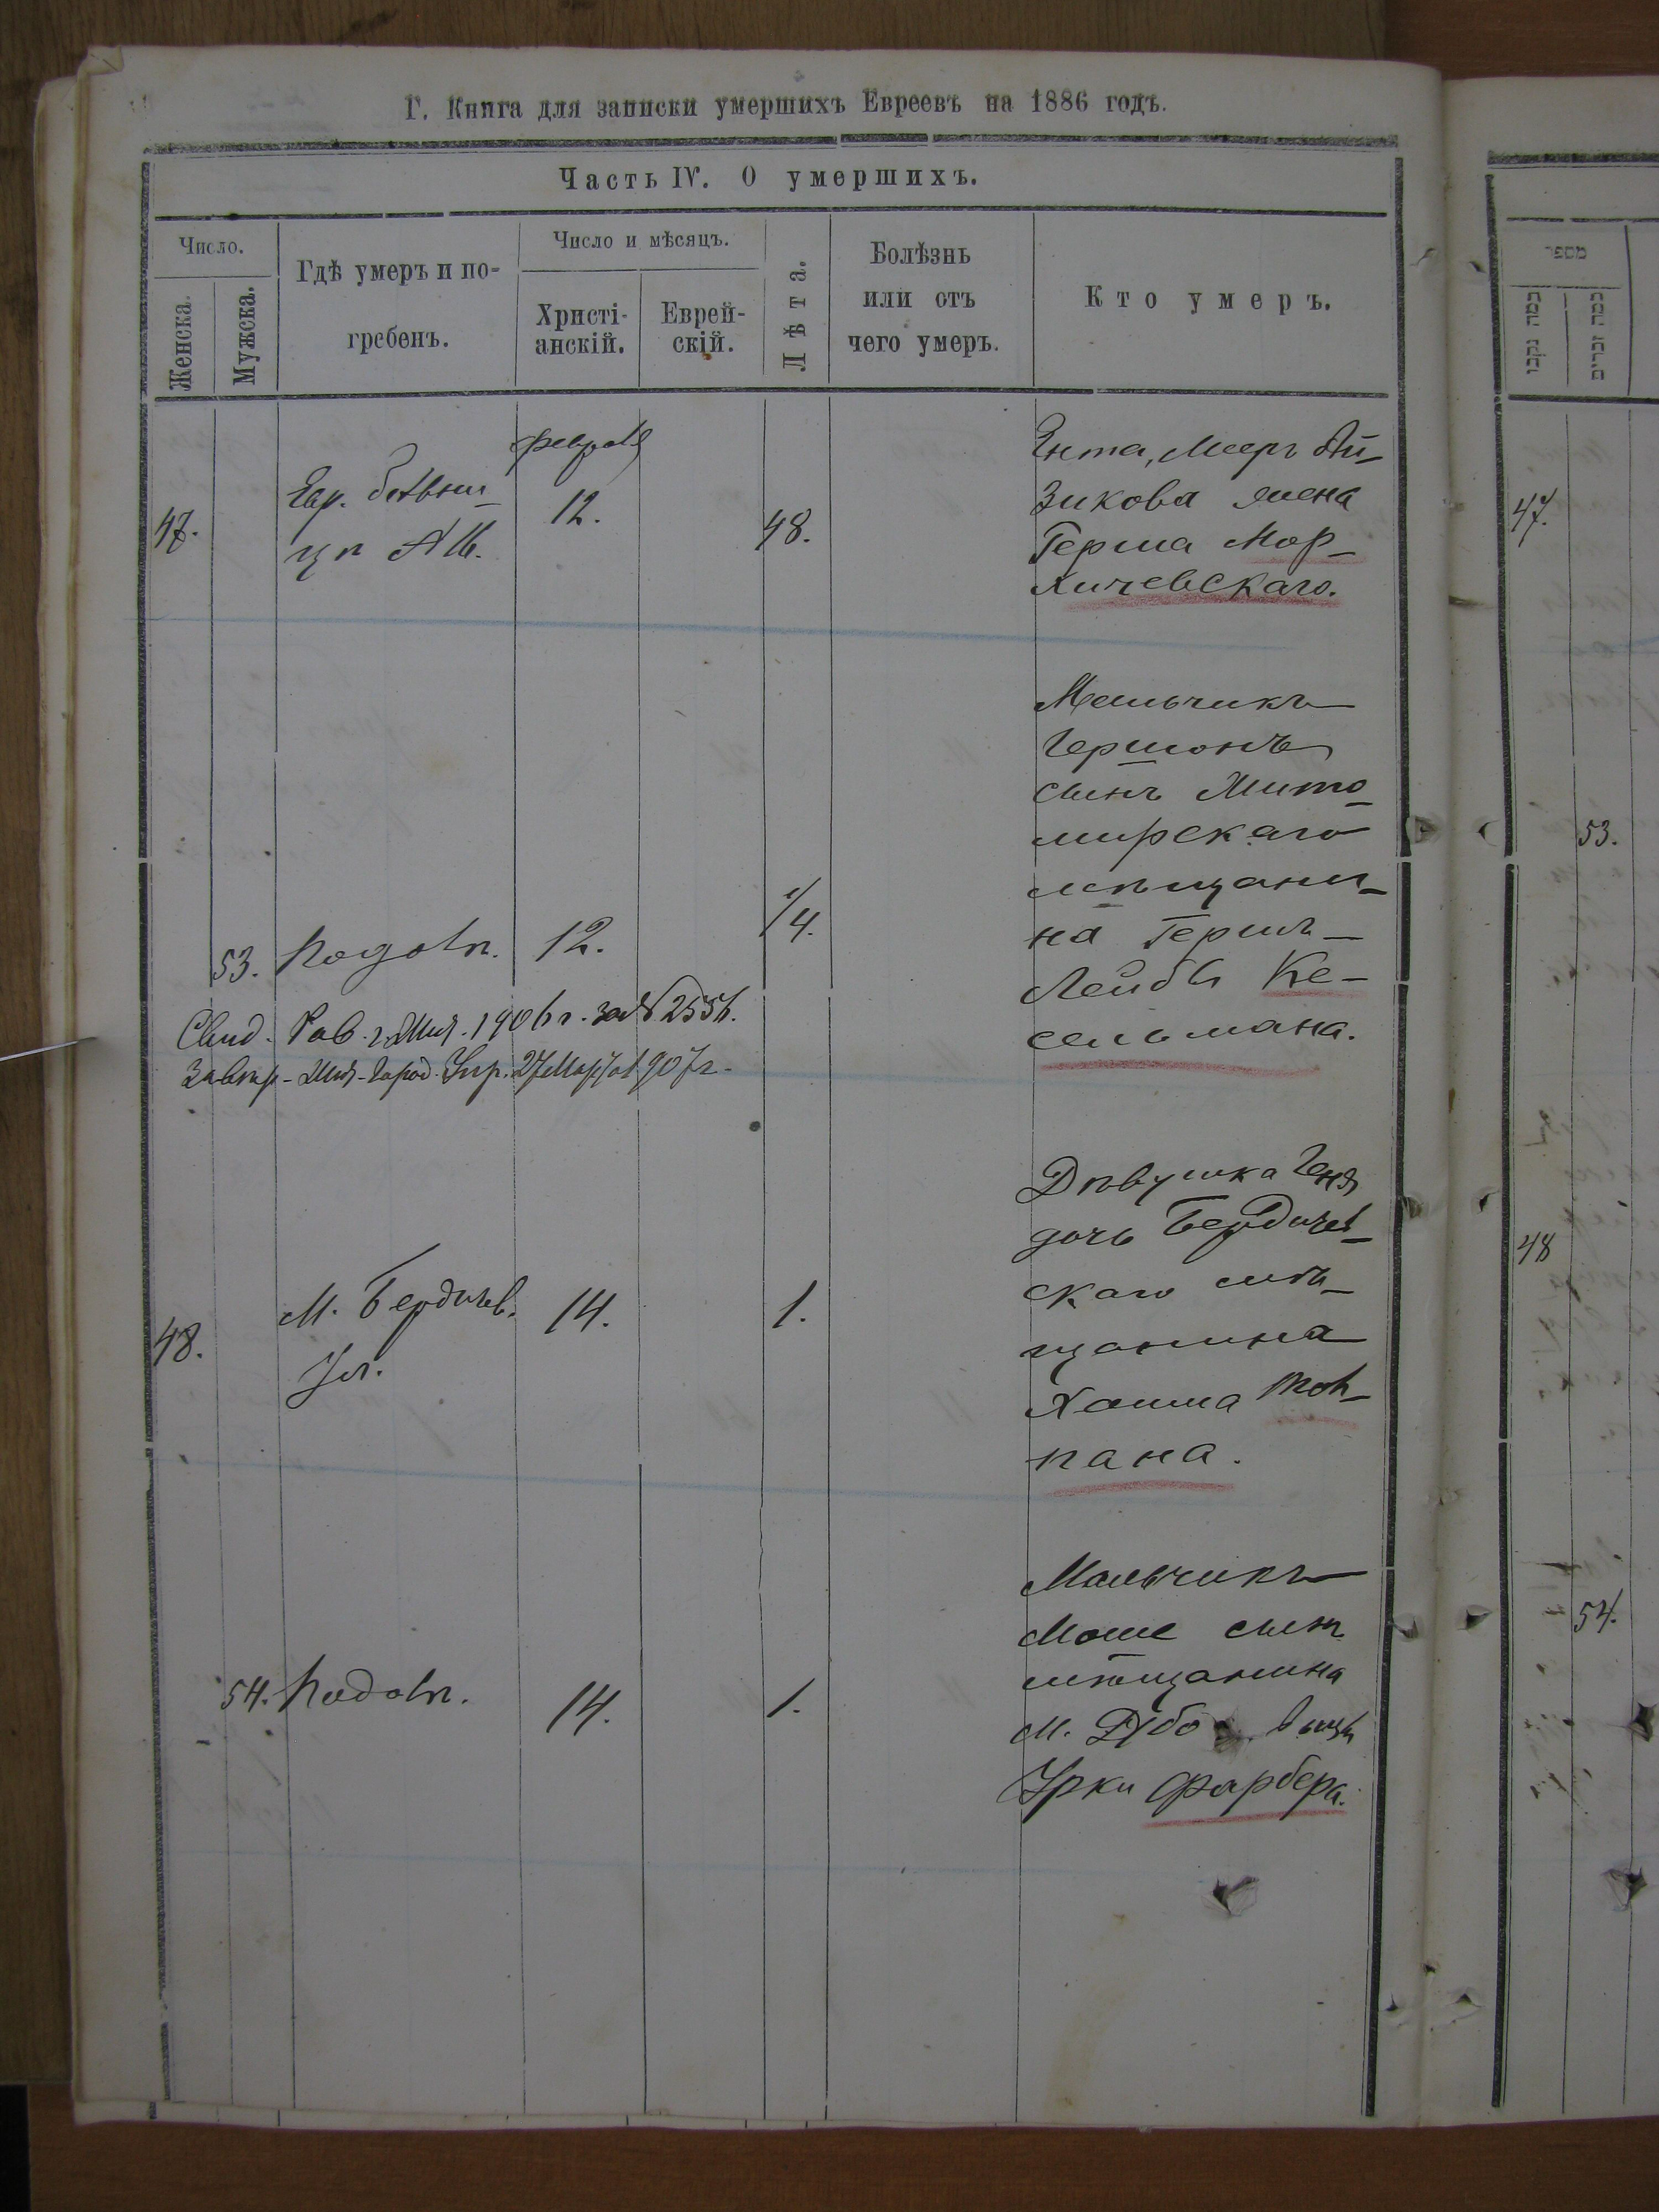 Г. Книга для записки умершихъ Евреевъ на 1886 годъ.
Часть IV. О умершихъ.
Число.
Женска.
Мужска.
Гдѣ умеръ и по-
гребенъ.
Число и мѣсяцъ.
Христі-
анскій.
Еврей-
скій.
Лѣта.
Болѣзнь
или отъ
чего умеръ.
Кто умеръ.
Февраля
47.
Евр. больни-
цѣ
12.
48.
Ента, Мееръ Ай-
зикова жена
Герша Мор-
хичевскаго.
53.
12.
1/4.
Мальчикъ
Гершонъ
сынъ Жито-
мирскаго
мѣщани-
на Гершъ-
Лейбы Ке-
сельмана.
Свид. Рав. г. Жит. 1906 г. за №
Жит. Город. Упр. 27 Марта 1907 г.
48.
М. Бердичев.
Ул.
14.
1.
Дѣвушка Геня
дочь Бердичев-
скаго мѣ-
щанина
Хаима
пана.
54.
14.
1.
Мальчикъ
Моше сынъ
мѣщанина
М.
Урки Фарбера.
מספר
47.
53.
48
54.